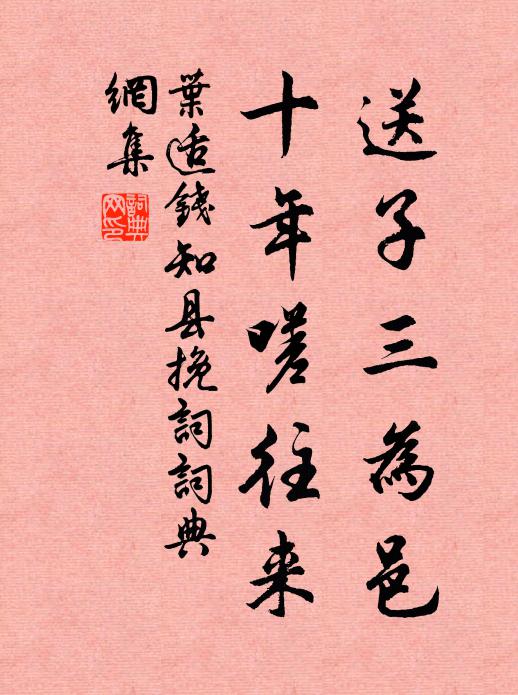 送子三為邑
十年嗟往来
葉适錢知县挽詞詞典
網集
詞典网印